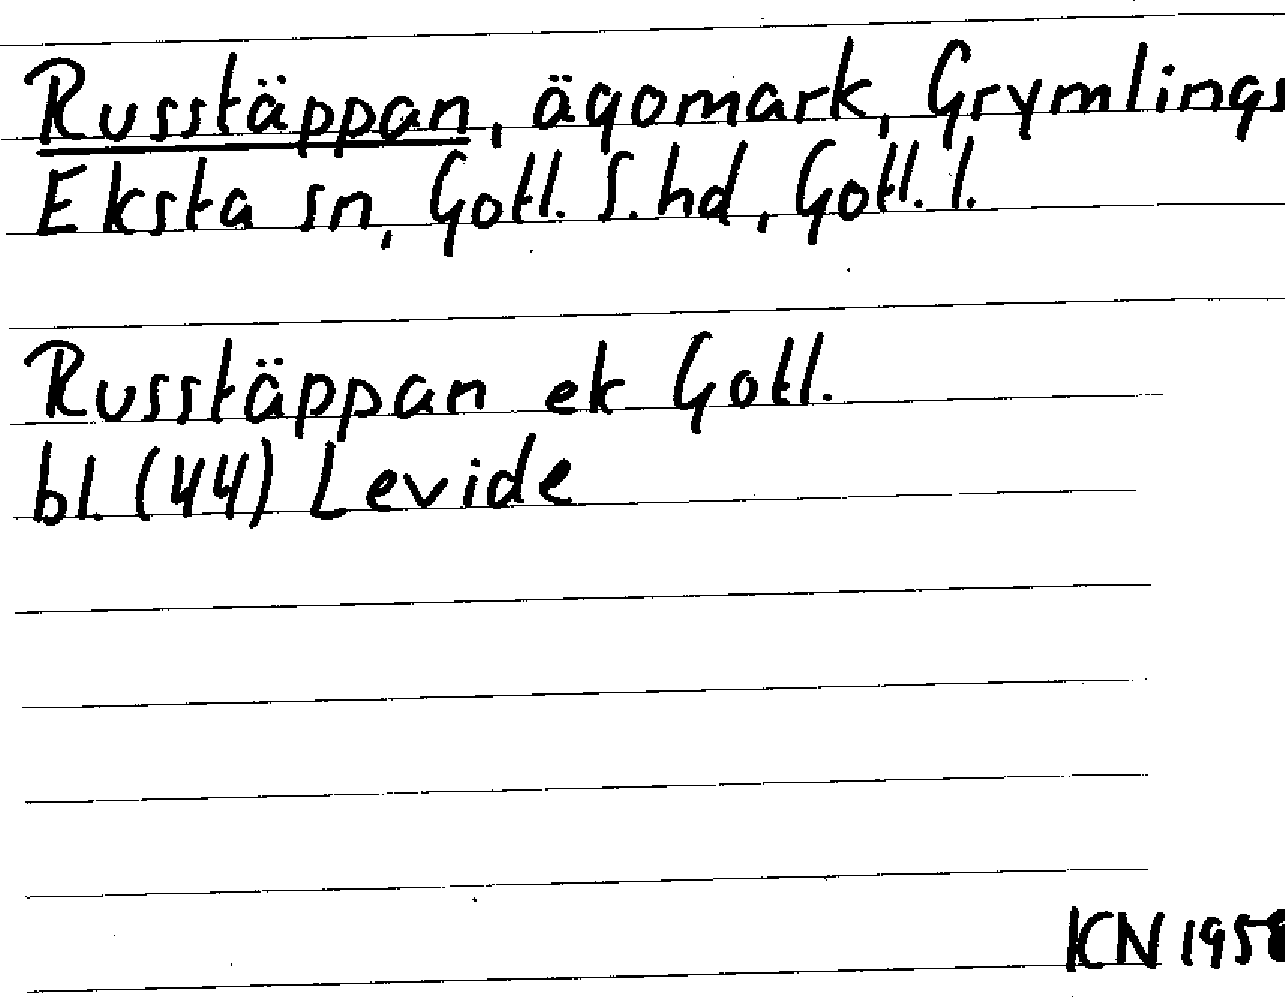 Russtäppan, ägomark, Grymlings
Eksta sn, Gotl. S. hd, Gotl. l.
Russtäppan ek Gotl.
bl. (44) Levide
KCN 1958